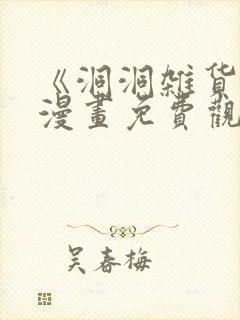 《洞洞雜貨
漫畫免費觀
吴春梅